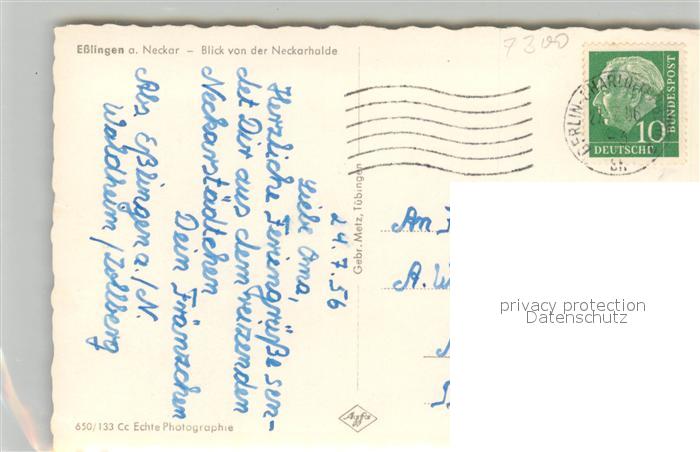 Eßlingen a. Neckar – Blick von der Neckarhalde
7300
BERLIN-CHARLOTT
10
DEUTSCHE
BUNDESPOST
24.7.56
Liebe Oma,
Herzliche Feriengrüße sen-
det Dir aus dem reizenden
Neckarstädtchen
Dein Fränzchen
Abs. Eßlingen a./N.
Waldheim/Zollberg
Gebr. Metz, Tübingen
An
A. W
privacy protection
Datenschutz
650/133 Cc Echte Photographie
Agfa